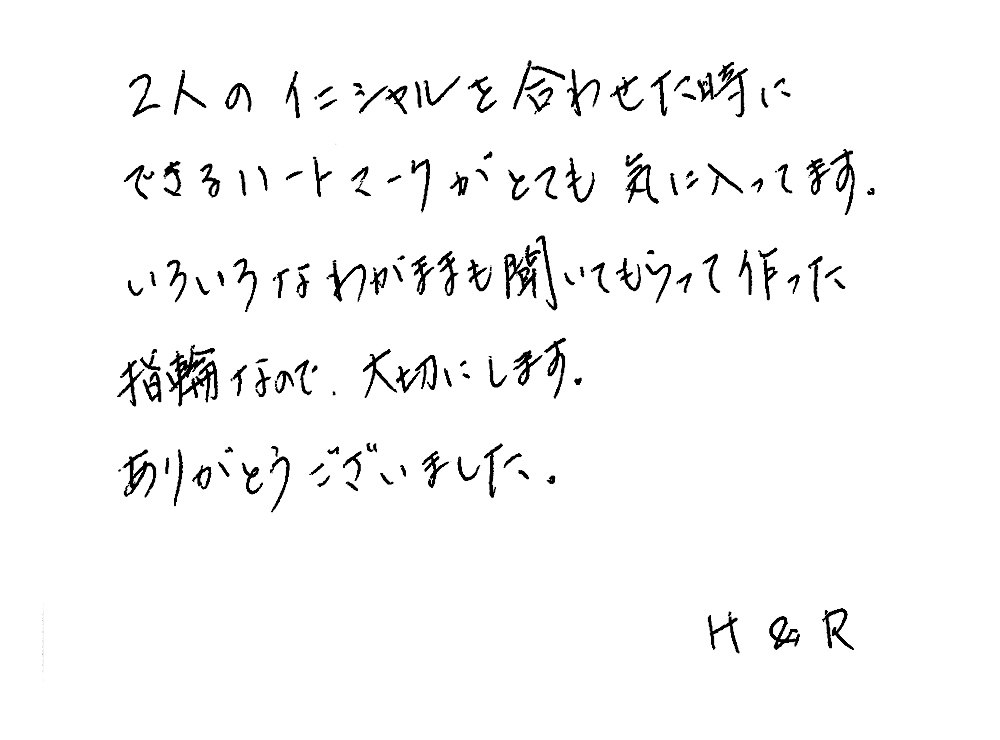 2人のイニシャルを合わせた時に
できるハートマークがとても気に入ってます。
いろいろなわがままも聞いてもらって作った
指輪なので、大切にします。
ありがとうございました。
H & R